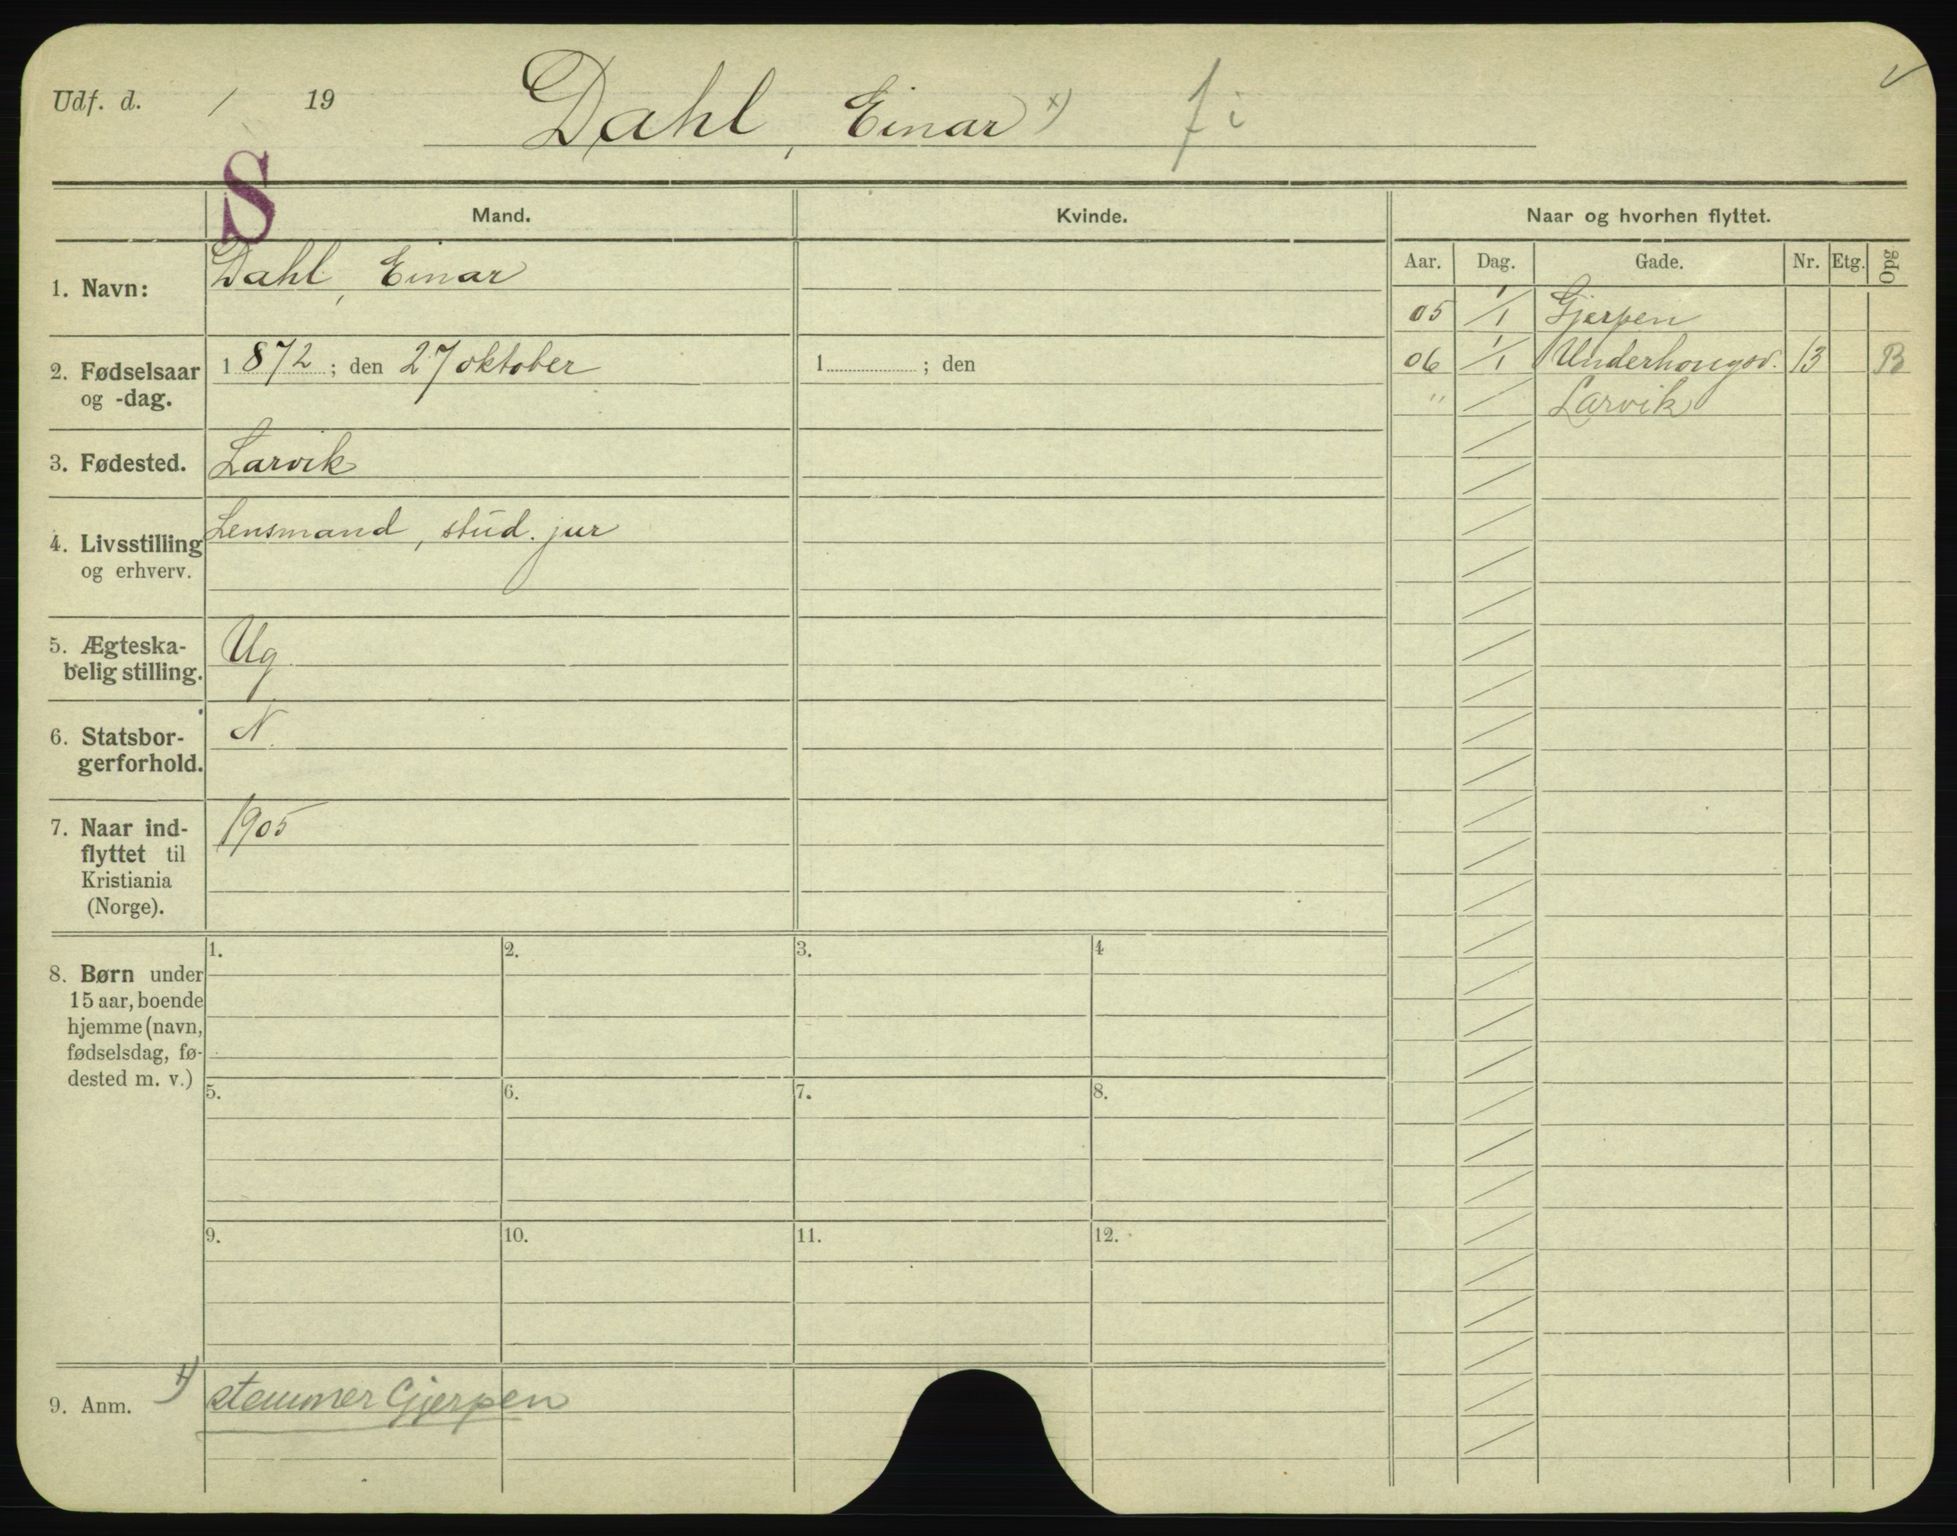 Udf. d. / 19 Dahl, Einar x) fi
S
Mand. Kvinde. Naar og hvorhen flyttet.
Aar. Dag. Gade. Nr. Etg. Opg
1. Navn: Dahl, Einar
05 1/1 Gjerpen
2. Fødselsaar og -dag. 1872; den 27 oktober 1 ; den
06 1/1 Underhougsv. 13 B
" / Larvik
3. Fødested. Larvik
4. Livsstilling og erhverv. Lensmand, stud. jur
5. Ægteska-
belig stilling. Ug.
6. Statsbor-
gerforhold. N.
7. Naar ind-
flyttet til
Kristiania
(Norge). 1905
8. Børn under
15 aar, boende
hjemme (navn,
fødselsdag, fø-
dested m. v.)
1. 2. 3. 4
5. 6. 7. 8.
9. 10. 11. 12.
9. Anm. stemmer Gjerpen